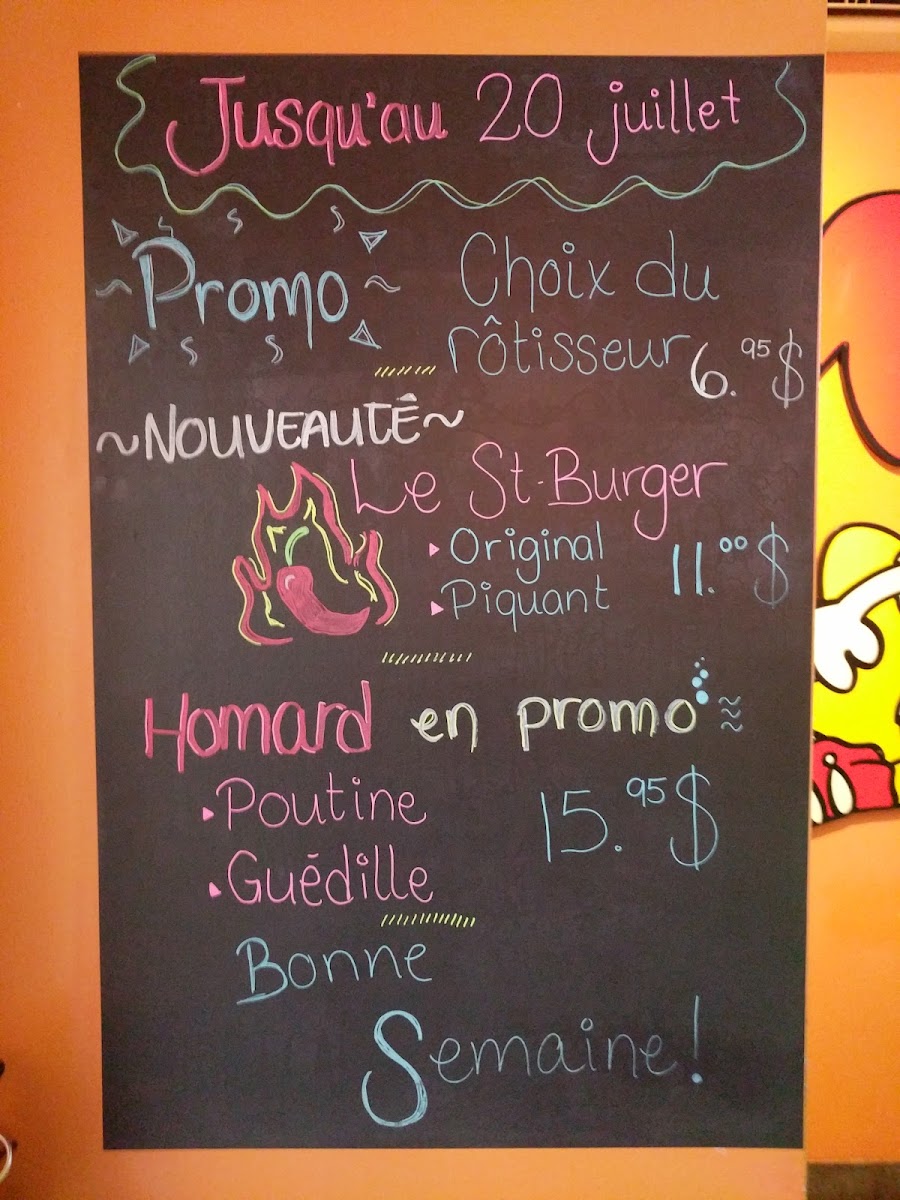 Jusqu'au 20 juillet
Promo
Choix du
rôtisseur
6.95$
~NOUVEAUTÉ~
Le St-Burger
Original
Piquant
11.00$
Homard en promo
Poutine
Guédille
15.95$
Bonne
Semaine!